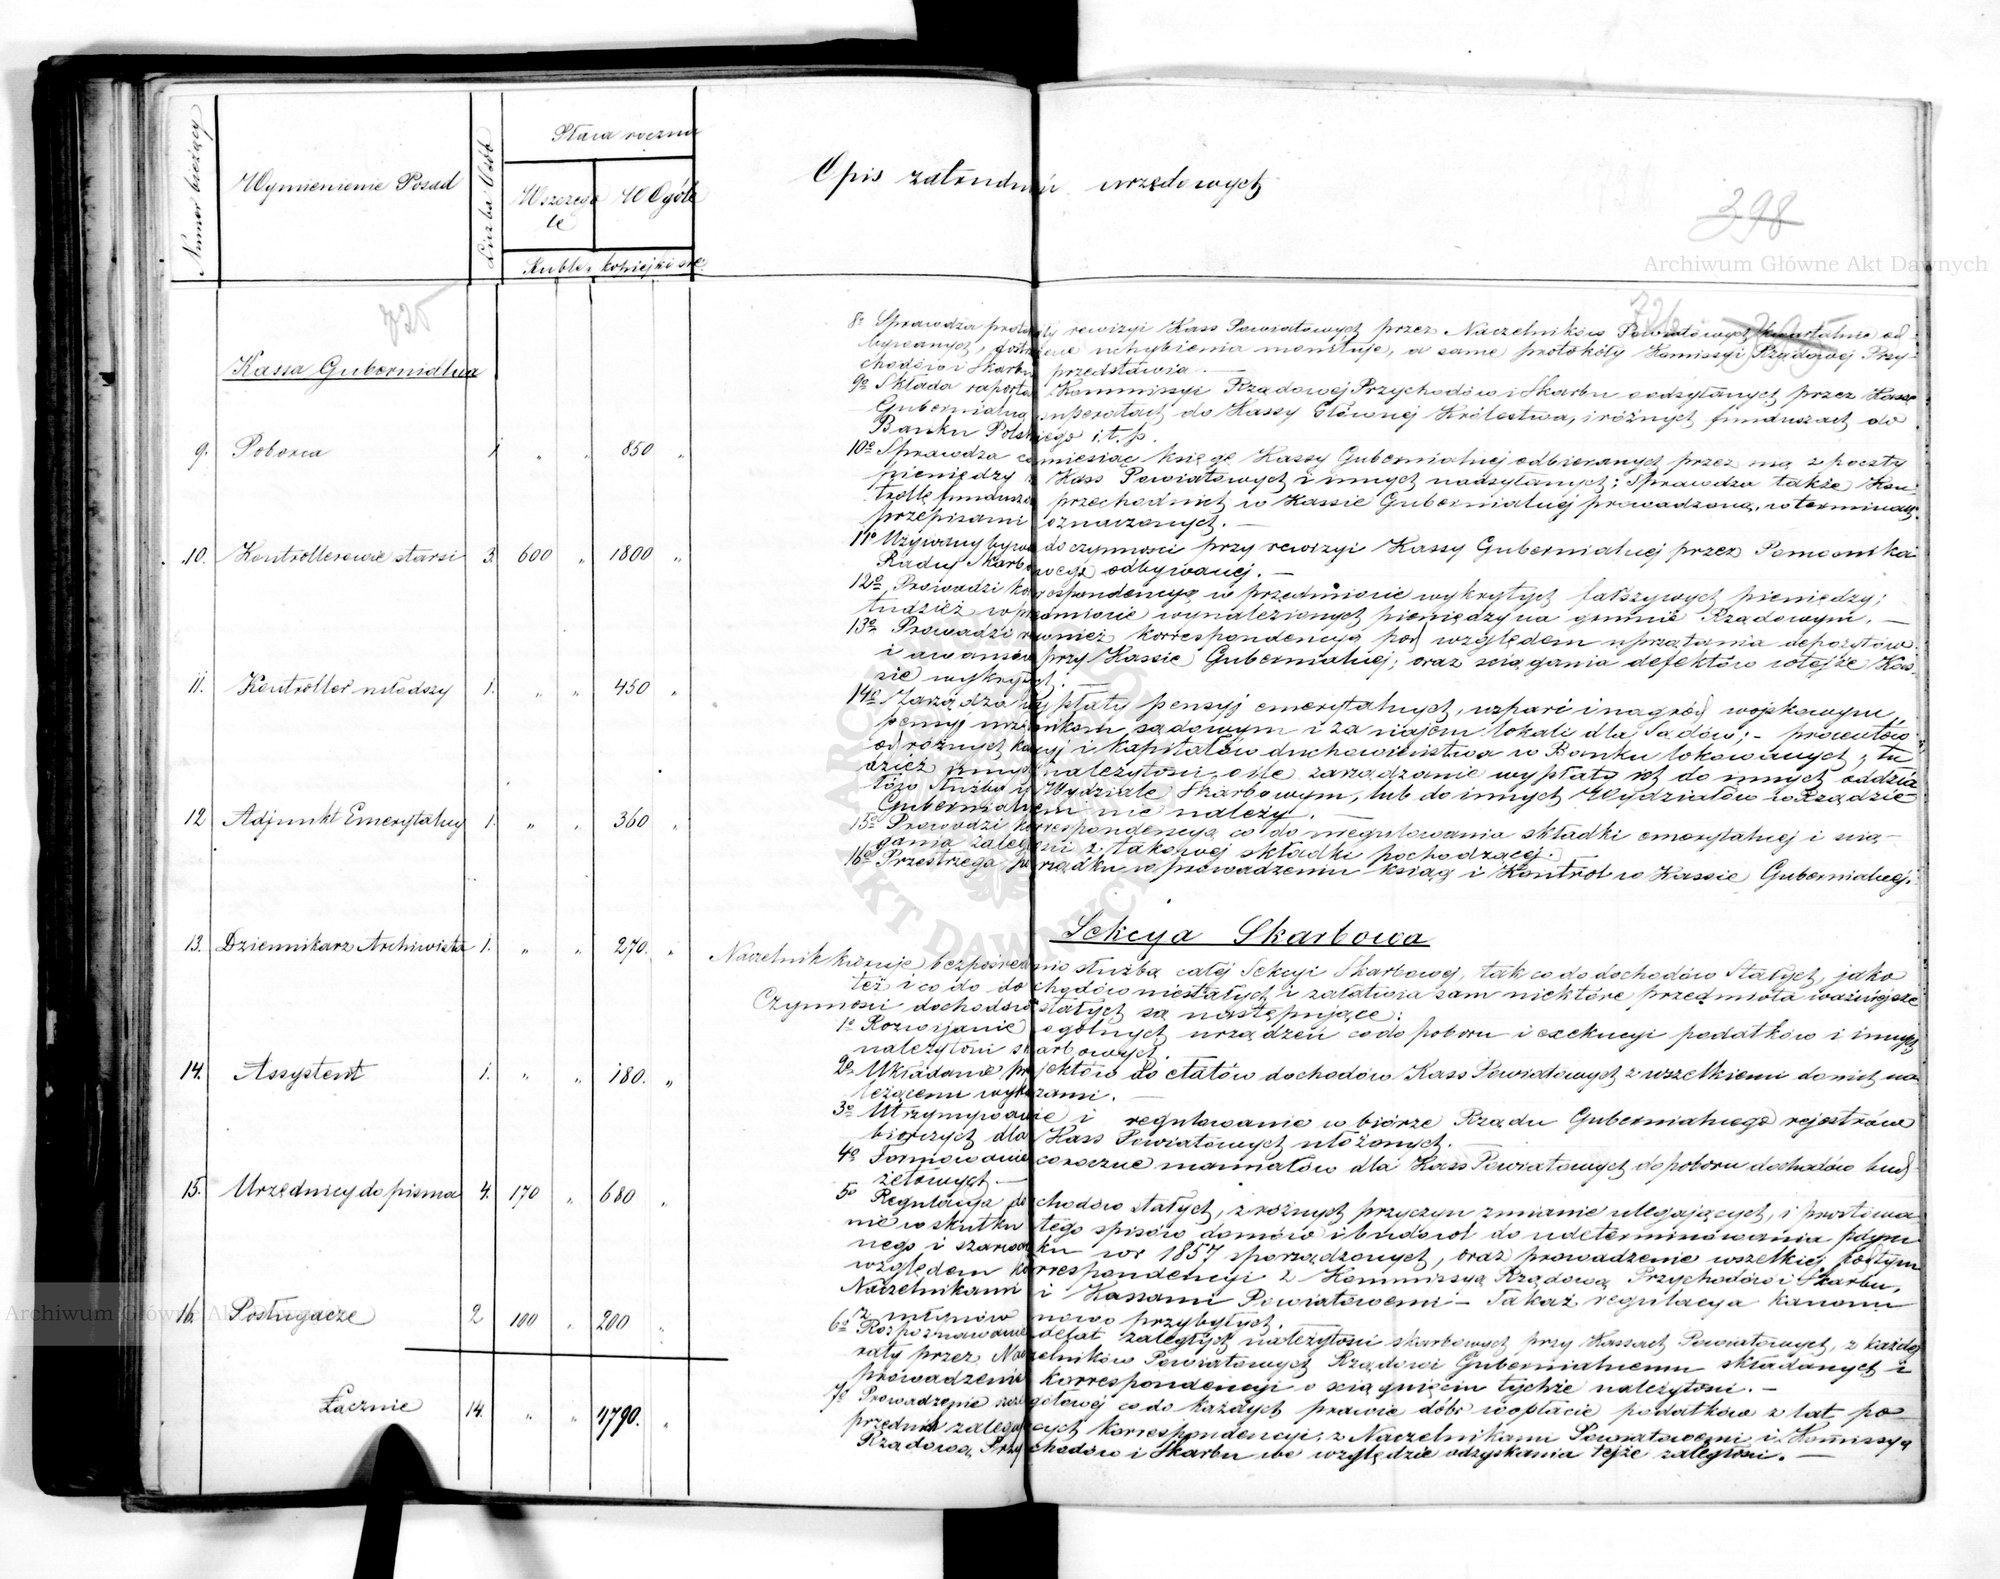 Numer bieżący
Wymienienie Posad
Liczba Osób
Płaca roczna
Wszczegó
le
W Ogóle
Ruble i kopiejki sre:
Opis zatrudnień urzędowych
398
725
Kassa Gubernialna
9. Poborca 1 " " 850 "
10. Kontrollerowie starsi 3. 600 " 1800 "
11. Kontroller młodszy 1. " " 450 "
12 Adjunkt Emerytalny 1. " " 360 "
13. Dziennikarz Archiwista 1. " " 270. "
14. Assystent 1. " " 180. "
15. Urzędnicy do pisma 4. 170 " 680 "
16. Posługacze 2 100 " 200 "
Łącznie 14. " " 4790. "
8o Sprawdza protokóły rewizyi Kass Powiatowych przez Naczelników Powiatowych kwartalnie od-
bywanych, dostrzeżone uchybienia monituje, a same protokóły Komissyi Rządowej Przy-
chodów i Skarbu przedstawia. —
9o Składa raporta Kommissyi Rządowej Przychodów i Skarbu o odsyłanych przez Kassę
Gubernialną superatach do Kassy Głównej Królestwa, i różnych funduszach do
Banku Polskiego i t. p.
10o Sprawdza co miesiąc księgę Kassy Gubernialnej odbieranych przez nią z poczty
pieniędzy z Kass Powiatowych i innych nadsyłanych; Sprawdza także Kon-
trollę funduszów przechodnich w Kassie Gubernialnej prowadzoną, w terminach
przepisami oznaczonych. —
11o Używany bywa do czynności przy rewizyi Kassy Gubernialnej przez Pomocnika
Radcy Skarbowego odbywanej. —
12o Prowadzi korrespondencyą w przedmiocie wykrytych fałszywych pieniędzy;
tudzież w przedmiocie wynalezionych pieniędzy na gruncie Rządowym. —
13o Prowadzi również korrespondencyą pod względem uprzątania depozytów
i awansów przy Kassie Gubernialnej; oraz ściągania defektów w tejże Kas-
sie wykrytych.
14o Zarządza wypłaty pensyj emerytalnych, wsparć i nagród wojskowym,
pensyj urzędnikom sądowym i za najem lokali dla Sądów; – procentów
od różnych kaucyj i kapitałów duchowieństwa w Banku lokowanych; tu-
dzież innych należytości, o ile zarządzanie wypłaty ich do innych oddzia-
łów służby w Wydziale Skarbowym, lub do innych Wydziałów w Rządzie
Gubernialnym nie należy. —
15o Prowadzi korrespondencyą co do uregulowania składki emerytalnej i ścią-
gania zaległości z takowej składki pochodzącej.
16o Przestrzega porządku w prowadzeniu ksiąg i Kontrol w Kassie Gubernialnej.
Sekcya Skarbowa
Naczelnik kieruje bezpośrednio służbą całej Sekcyi Skarbowej, tak co do dochodów Stałych, jako
też i co do dochodów niestałych i załatwia sam niektóre przedmiota ważniejsze
Czynności dochodów stałych są następujące:
1o Rozwijanie ogólnych urządzeń co do poboru i exekucyi podatków i innych
należytości skarbowych.
2o Układanie projektów do etatów dochodów Kass Powiatowych z wszelkiemi do nich na-
leżącemi wykazami. —
3o Utrzymywanie i regulowanie w biórze Rządu Gubernialnego rejestrów
biorczych dla Kass Powiatowych ułożonych. —
4o Formowanie coroczne manuałów dla Kass Powiatowych do poboru dochodów bud-
żetowych. —
5o Regulacya dochodów stałych, z różnych przyczyn zmianie ulegających, i prostowa-
nie w skutku tego spisów domów i budowl do udeterminowania podym-
nego i szarwarku w r. 1857 sporządzonych, oraz prowadzenie wszelkiej pod tym
względem korrespondencyi z Kommissyą Rządową Przychodów i Skarbu,
Naczelnikami i Kassami Powiatowemi – Takaż regulacya kanonu
z młynów nowo przybyłych.
6o Rozpoznawanie delat zaległych należytości skarbowych przy Kassach Powiatowych, z każdej
raty przez Naczelników Powiatowych Rządowi Gubernialnemu składanych i
prowadzenie korrespondencyi o ściągnięciu tychże należytości. —
7o Prowadzenie szczegółowej co do każdych prawie dóbr w opłacie podatków z lat po-
przednich zalegających korrespondencyi, z Naczelnikami Powiatowemi i Kommissyą
Rządową Przychodów i Skarbu we względzie odzyskania tejże zaległości. —
Archiwum Główne Akt Dawnych
Archiwum Główne Akt Dawnych